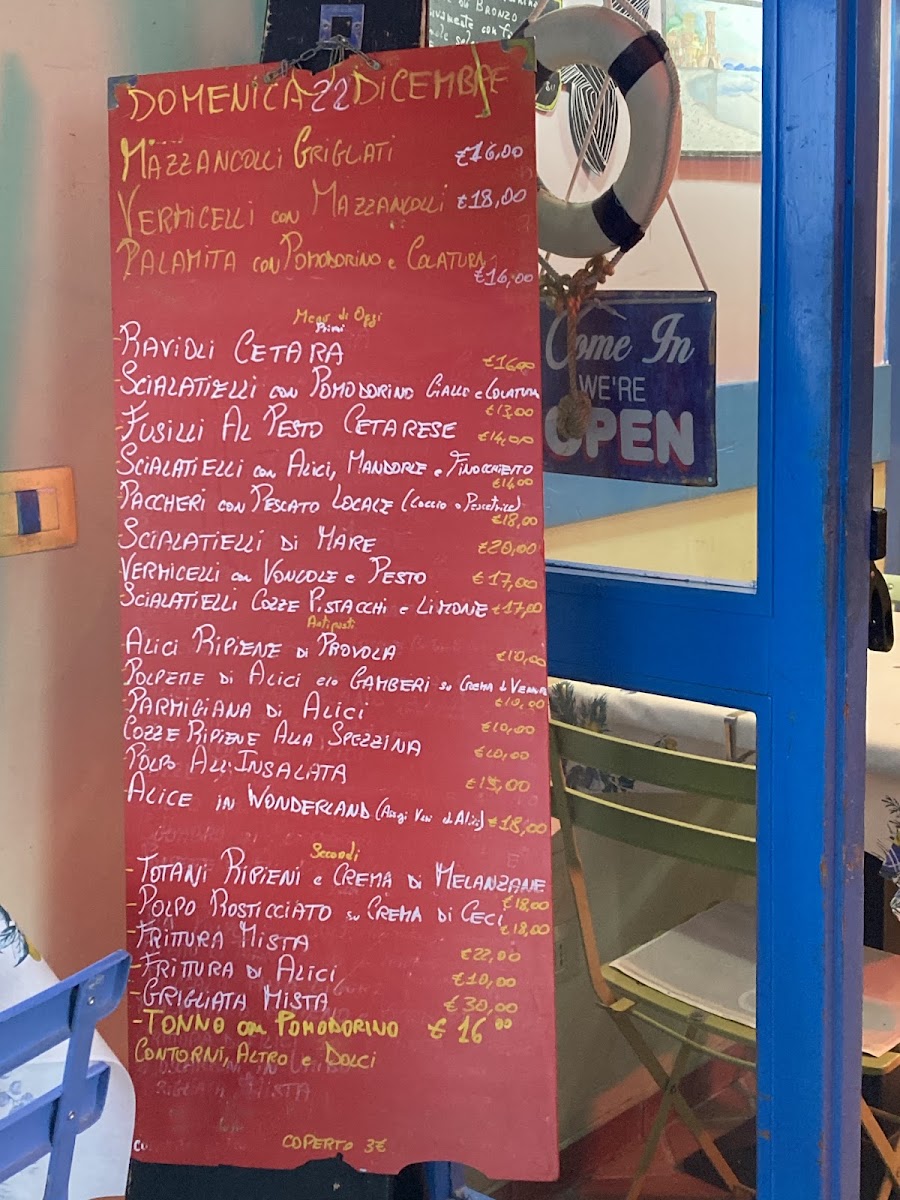 DI BRONZO
DOMENICA 22 DICEMBRE
MAZZANCOLLI GRIGLIATI €16,00
VERMICELLI CON MAZZANCOLLI €18,00
PALAMITA CON POMODORINO E COLATURA
€16,00
Menu di Oggi
Primi
RAVIOLI CETARA
€16,00
-SCIALATIELLI CON POMODORINO GIALLO E COLATURA
€13,00
-FUSILLI AL PESTO CETARESE €14,00
SCIALATIELLI CON ALICI, MANDORLE E FINOCCHIETTO
€14,00
PACCHERI CON PESCATO LOCALE (Coccio o Pescatrice)
€18,00
-SCIALATIELLI DI MARE €20,00
VERMICELLI CON VONGOLE E PESTO €17,00
-SCIALATIELLI COZZE PISTACCHI E LIMONE €17,00
Antipasti
-ALICI RIPIENE DI PROVOLA €10,00
POLPETTE DI ALICI E/O GAMBERI SU CREMA DI
€10,00
-PARMIGIANA DI ALICI €10,00
COZZE RIPIENE ALLA SPEZZINA €10,00
-POLPO ALL'INSALATA €15,00
-ALICE IN WONDERLAND €18,00
Secondi
-TOTANI RIPIENI E CREMA DI MELANZANE
€18,00
-POLPO ROSTICCIATO SU CREMA DI CECI
€18,00
-FRITTURA MISTA €22,00
-FRITTURA DI ALICI €10,00
-GRIGLIATA MISTA €30,00
-TONNO CON POMODORINO €16,00
CONTORNI, ALTRO E DOLCI
COPERTO 3€
Come In
WE'RE
OPEN